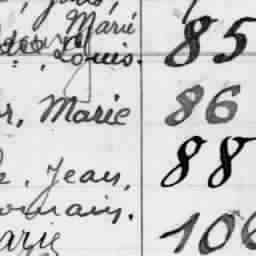 Marie
Louis. 85
r, Marie 86
Jean, 88
omain.
arie 106